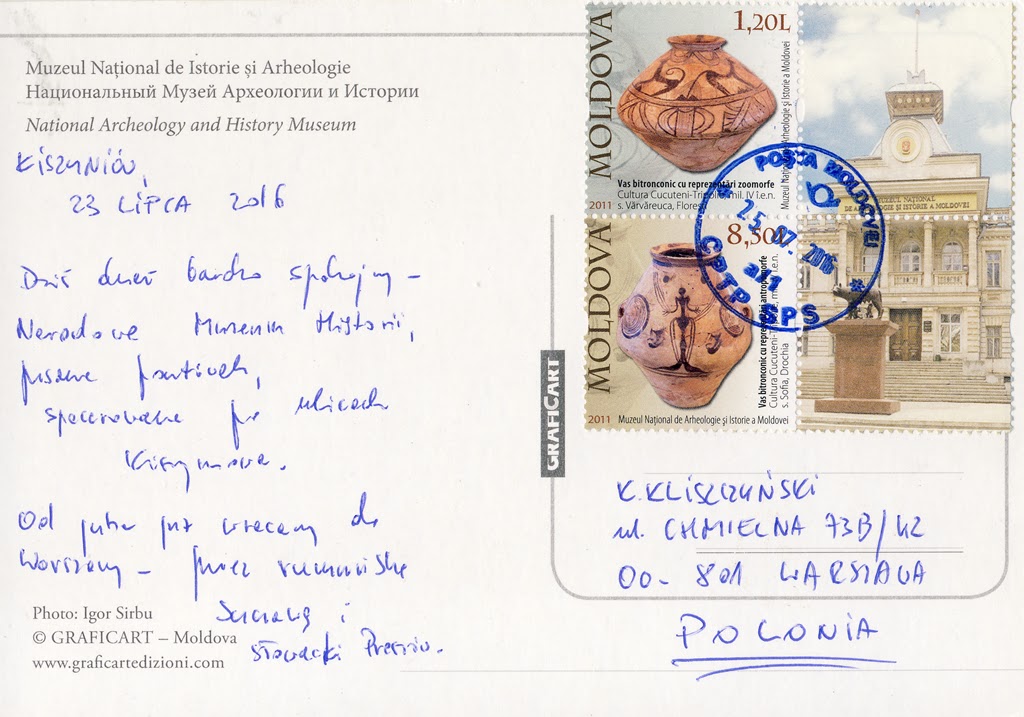 Muzeul Național de Istorie și Arheologie
Национальный Музей Археологии и Истории
National Archeology and History Museum
KiSZYNIÓW,
23 LIPCA 2016
Dziś dzień bardzo spokojny –
Narodowe Muzeum Historii,
pisanie kartek,
spacerowanie po ulicach
Kiszyniowa.
Od jutra już wracamy do
Warszawy – przez rumuńską
Suczawę i
słowacki Preszów.
Photo: Igor Sirbu
© GRAFICART – Moldova
www.graficartedizioni.com
GRAFICART
MOLDOVA
1,20L
Vas bitronconic cu reprezentări zoomorfe
Cultura Cucuteni-Tripolie, mil. IV î.e.n.
2011 s. Vărvăreuca, Florești
Muzeul Național de Arheologie și Istorie a Moldovei
MOLDOVA
8,50L
Vas bitronconic cu reprezentări antropomorfe
Cultura Cucuteni-
s. Sofia, Drochia
2011 Muzeul Național de Arheologie și Istorie a Moldovei
MUZEUL NAȚIONAL
DE ARHEOLOGIE ȘI ISTORIE A MOLDOVEI
POȘTA MOLDOVEI
25.07.2016
CPTP
K. KLISZCZYŃSKI
ul. CHMIELNA 73B/42
00-801 WARSZAWA
POLONIA